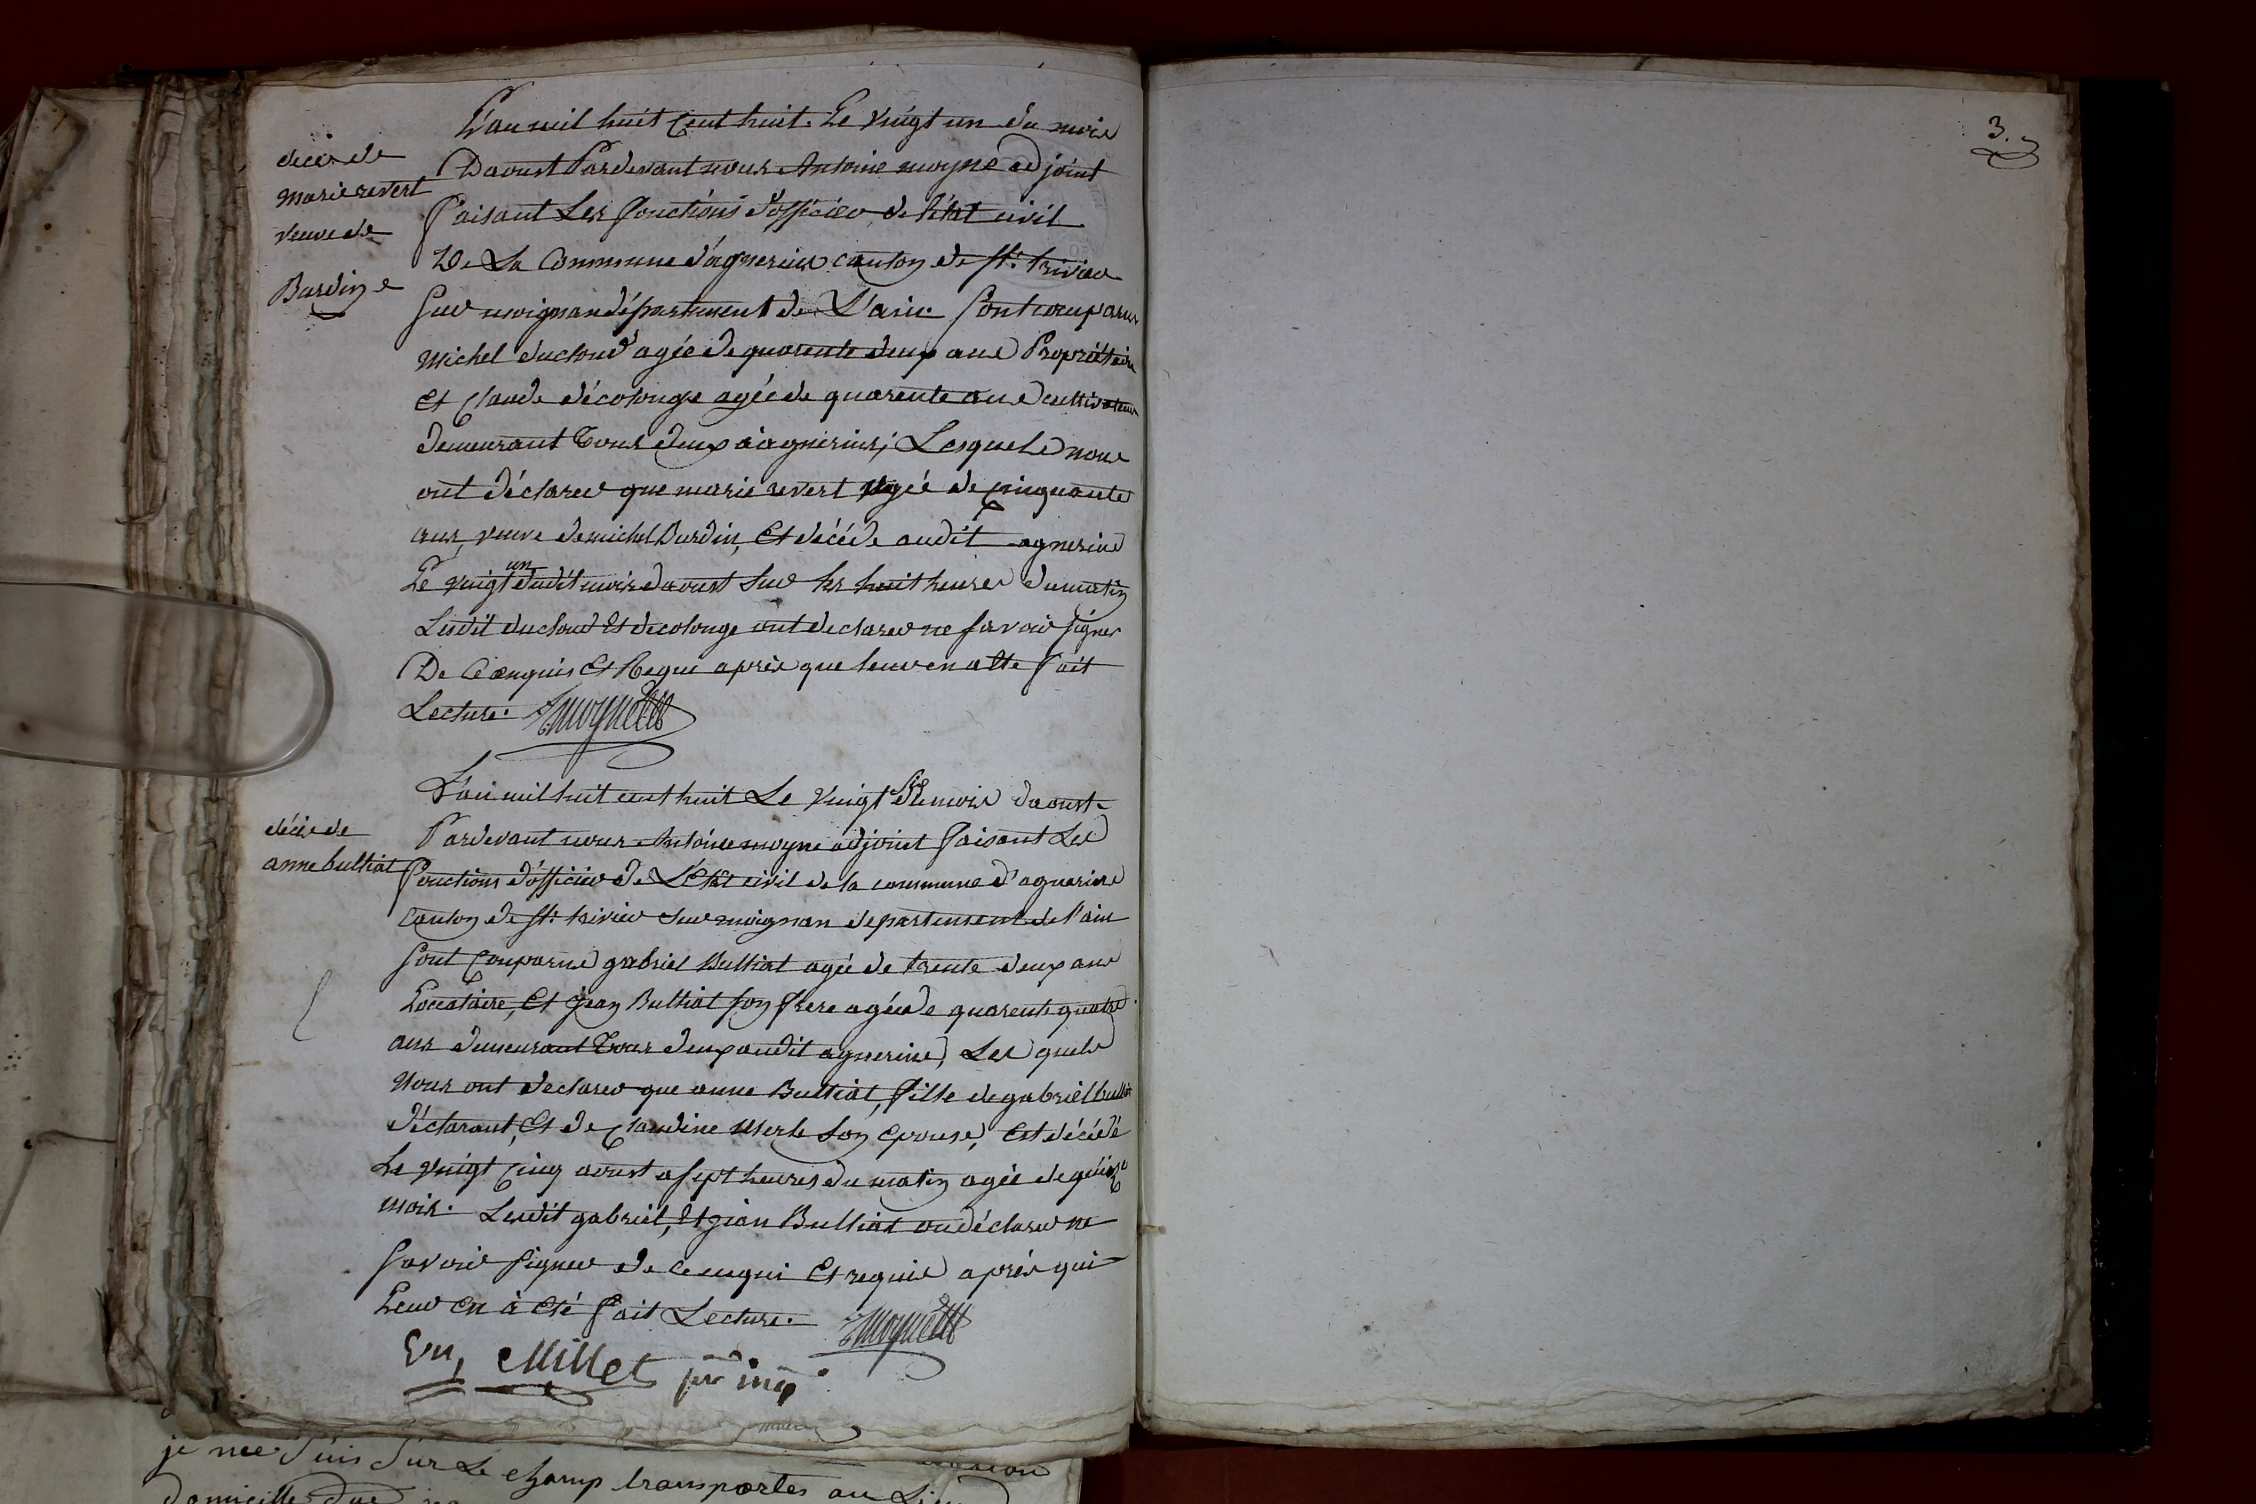 L'an mil huit Cent huit. Le vingt un du mois
Daoust Pardevant nous Antoine moyne adjoint
faisant Les fonctions d'officier de l'état civil
De La Commune d'agnerins canton de st. trivier
sur moignan département de L'ain. sont comparus
michel ducloud agée de quarente deux ans Propriétaire
et Claude décolonge agée de quarente ans cultivateur
demeurant tous deux à agnerins, Lesquels nous
ont déclarer que marie revert agée de cinquante
ans, veuve de michel Burdin, Et décédé audit agnerins
Le vingt un dudit mois daoust sur les huit heures du matin
Lesdit ducloud Et decolonge ont declarer ne savoir signer
De ce enquis Et Requi après que leur en a ette fait
Lecture. Amoyne
décès de
marie revert
veuve de
Burdin
L'an mil huit cent huit Le vingt six du mois daoust.
Pardevant nous Antoine moyne adjoint faisant Les
fonctions d'officier de L'état civil de la commune d'agnerins
canton de st. trivier sur moignan departement de l'ain
sont comparus gabriel Bulliat agée de trente deux ans
Locataire, Et jean Bulliat son frere agée de quarente quatre
ans demeurant tous deux audit agnerins, Les quels
nous ont declarer que anne Bulliat, fille de gabriel bulliat
déclarant, Et de Claudine merle son epouse, Est décédé
Le vingt cinq aoust a sept heures du matin agée de quinze
mois. Lesdit gabriel, Et jean Bulliat on déclarer ne
savoir signer de ce enqui Et requis après que
Leur en à été fait Lecture. Amoyne
décès de
anne bulliat
Vu, Millet
3.
je me suis sur Le champ transportes au
domicille